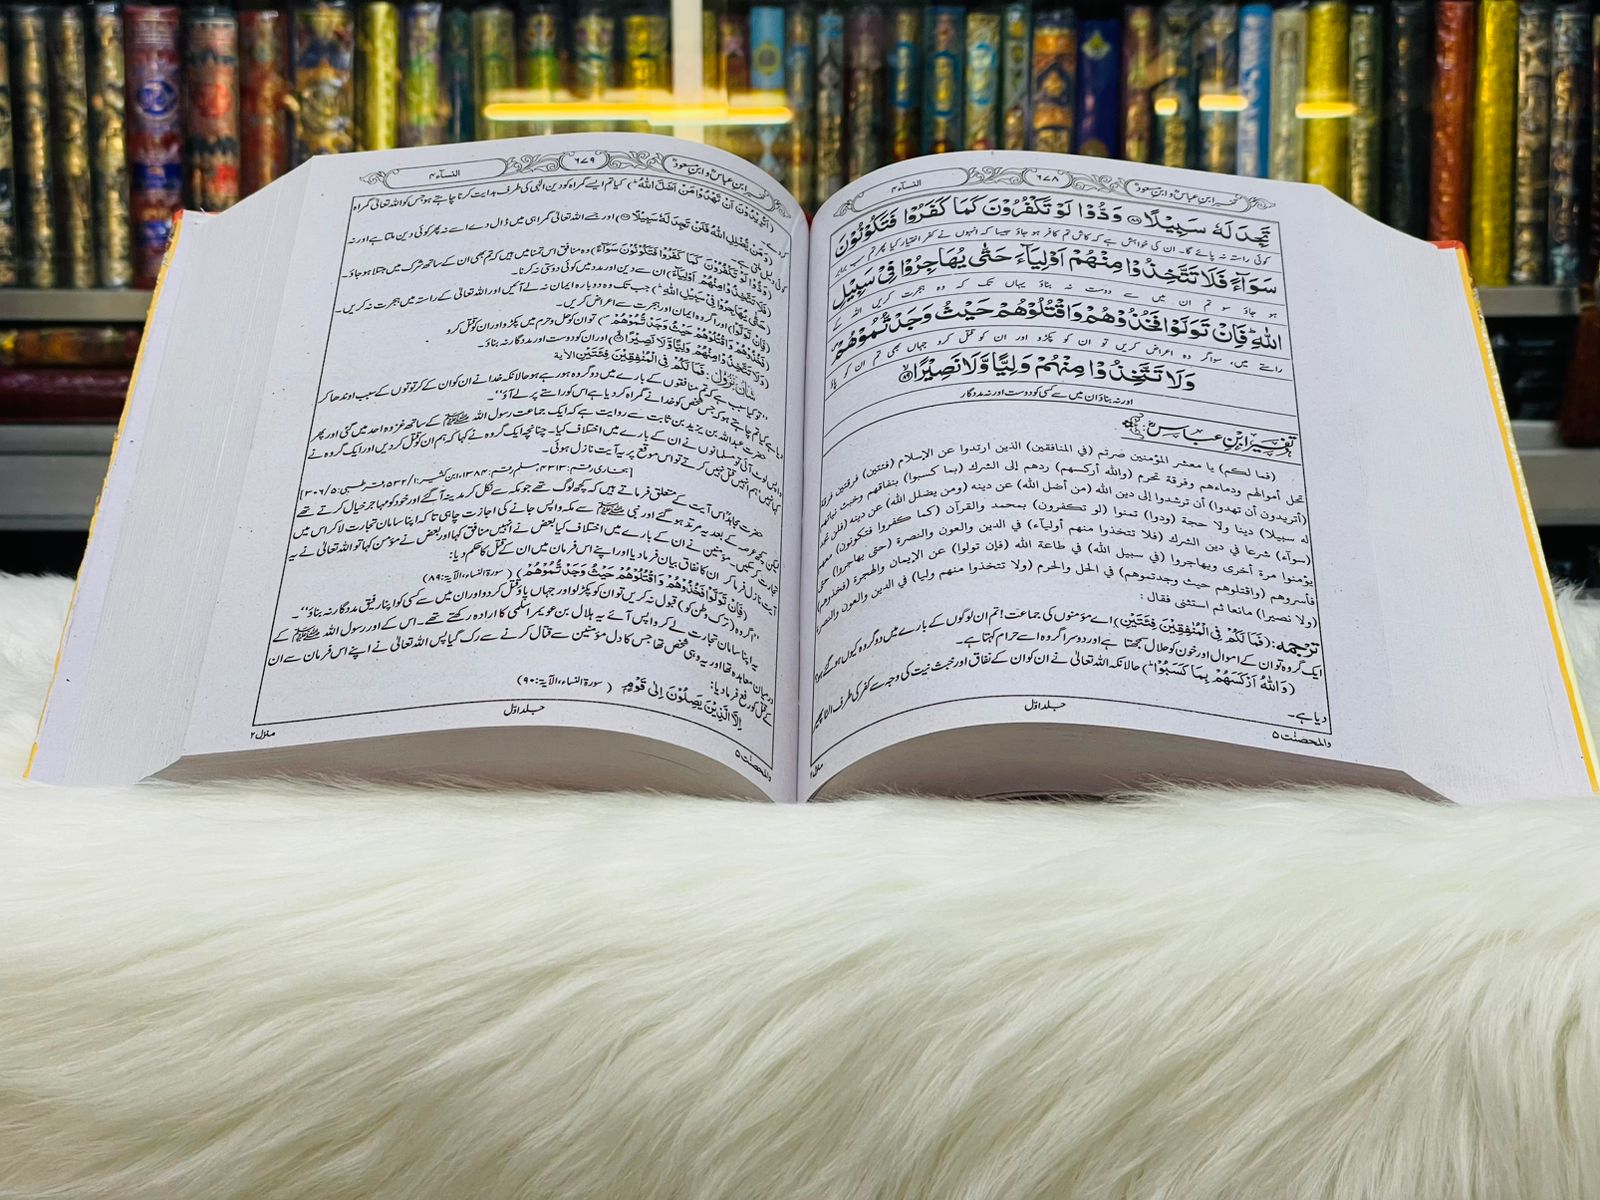 النسآء۴
۶۷۸
تفسیر ابن عباسؓ و ابن مسعودؓ
تَجِدَ لَهٗ سَبِيْلًا۝۸۸ وَدُّوْا لَوْ تَكْفُرُوْنَ كَمَا كَفَرُوْا فَتَكُوْنُوْنَ
کوئی راستہ نہ پائے گا۔ ان کی خواہش ہے کہ کاش تم کافر ہو جاؤ جیسا کہ انہوں نے کفر اختیار کیا پھر تم سب برابر
سَوَآءً فَلَا تَتَّخِذُوْا مِنْهُمْ اَوْلِيَآءَ حَتّٰى يُهَاجِرُوْا فِيْ سَبِيْلِ
ہو جاؤ سو تم ان میں سے دوست نہ بناؤ یہاں تک کہ وہ ہجرت کریں اللہ کے
اللّٰهِ ؕ فَاِنْ تَوَلَّوْا فَخُذُوْهُمْ وَاقْتُلُوْهُمْ حَيْثُ وَجَدْتُّمُوْهُمْ ۪
راستے میں، سواگر وہ اعراض کریں تو ان کو پکڑو اور ان کو قتل کرو جہاں بھی تم ان کو پاؤ
وَلَا تَتَّخِذُوْا مِنْهُمْ وَلِيًّا وَّلَا نَصِيْرًا۝۸۹
اور نہ بناؤ ان میں سے کسی کو دوست اور نہ مددگار
تفسیر ابن عباسؓ:
(فما لكم) يا معشر المؤمنين صرتم (في المنافقين) الذين ارتدوا عن الإسلام (فئتين) فرقتين فرقة
تحل أموالهم ودماءهم وفرقة تحرم (والله أركسهم) ردهم إلى الشرك (بما كسبوا) بنفاقهم وخبث نياتهم
(أتريدون أن تهدوا) أن ترشدوا إلى دين الله (من أضل الله) عن دينه (ومن يضلل الله) عن دينه (فلن تجد
له سبيلا) دينا ولا حجة (ودوا) تمنوا (لو تكفرون) بمحمد والقرآن (كما كفروا فتكونون) معهم
(سوآء) شرعا في دين الشرك (فلا تتخذوا منهم أوليآء) في الدين والعون والنصرة (حتى يهاجروا) حتى
يؤمنوا مرة أخرى ويهاجروا (في سبيل الله) في طاعة الله (فإن تولوا) عن الإيمان والهجرة (فخذوهم)
فأسروهم (واقتلوهم حيث وجدتموهم) في الحل والحرم (ولا تتخذوا منهم وليا) في الدين والعون والنصرة
(ولا نصيرا) مانعا ثم استثنى فقال :
ترجمہ: (فَمَا لَكُمْ فِي الْمُنٰفِقِيْنَ فِئَتَيْنِ) اے مؤمنوں کی جماعت! تم ان لوگوں کے بارے میں دو گروہ کیوں ہو گئے ہو؟
ایک گروہ تو ان کے اموال اور خون کو حلال سمجھتا ہے اور دوسرا گروہ اسے حرام کہتا ہے۔
(وَاللّٰهُ اَرْكَسَهُمْ بِمَا كَسَبُوْا ؕ) حالانکہ اللہ تعالیٰ نے ان کو ان کے نفاق اور خبث نیت کی وجہ سے کفر کی طرف الٹا پھیر
دیا ہے۔
جلد اوّل
والمحصنٰت ۵
تفسیر ابن عباسؓ و ابن مسعودؓ
۶۷۹
النسآء۴
(اَتُرِيْدُوْنَ اَنْ تَهْدُوْا مَنْ اَضَلَّ اللّٰهُ ؕ) کیا تم ایسے گمراہ کو دین الٰہی کی طرف ہدایت کرنا چاہتے ہو جس کو اللہ تعالیٰ گمراہ
کردے۔
(وَمَنْ يُّضْلِلِ اللّٰهُ فَلَنْ تَجِدَ لَهٗ سَبِيْلًا۝۸۸) اور جسے اللہ تعالیٰ گمراہی میں ڈال دے اسے نہ پھر کوئی دین ملتا ہے اور نہ
کوئی دلیل ملتی ہے۔
(وَدُّوْا لَوْ تَكْفُرُوْنَ كَمَا كَفَرُوْا فَتَكُوْنُوْنَ سَوَآءً) وہ منافق اس تمنا میں ہیں کہ تم بھی ان کے ساتھ شرک میں مبتلا ہو جاؤ۔
(فَلَا تَتَّخِذُوْا مِنْهُمْ اَوْلِيَآءَ) ان سے دین اور مدد میں کوئی دوستی نہ کرنا۔
(حَتّٰى يُهَاجِرُوْا فِيْ سَبِيْلِ اللّٰهِ ؕ) جب تک وہ دوبارہ ایمان نہ لے آئیں اور اللہ تعالیٰ کے راستہ میں ہجرت نہ کریں۔
(فَاِنْ تَوَلَّوْا) اور اگر وہ ایمان اور ہجرت سے اعراض کریں۔
(فَخُذُوْهُمْ وَاقْتُلُوْهُمْ حَيْثُ وَجَدْتُّمُوْهُمْ ۪) تو ان کو حل و حرم میں پکڑو اور ان کو قتل کرو
(وَلَا تَتَّخِذُوْا مِنْهُمْ وَلِيًّا وَّلَا نَصِيْرًا۝۸۹) اور ان کو دوست اور مددگار نہ بناؤ۔
شان نزول: فَمَا لَكُمْ فِي الْمُنٰفِقِيْنَ فِئَتَيْنِ الآیة
”تو کیا سبب ہے کہ تم منافقوں کے بارے میں دو گروہ ہو رہے ہو حالانکہ خدا نے ان کو ان کے کرتوتوں کے سبب اوندھا کر
دیا ہے کیا تم چاہتے ہو کہ جس شخص کو خدا نے گمراہ کر دیا ہے اس کو راستے پر لے آؤ“۔
حضرت عبداللہ بن یزید بن ثابت سے روایت ہے کہ ایک جماعت رسول اللہ ﷺ کے ساتھ غزوہ احد میں گئی اور پھر
واپس لوٹ آئی تو مسلمانوں نے ان کے بارے میں اختلاف کیا۔ چنانچہ ایک گروہ نے کہا کہ ہم ان کو قتل کر دیں اور ایک گروہ نے
کہا نہیں ہم انہیں قتل نہیں کرتے تو اس موقع پر یہ آیت نازل ہوئی۔
حضرت مجاہدؒ اس آیت کے متعلق فرماتے ہیں کہ کچھ لوگ تھے جو مکہ سے نکل کر مدینہ آگئے اور خود کو مہاجر خیال کرتے تھے
لیکن کچھ عرصہ کے بعد یہ مرتد ہو گئے اور نبی ﷺ سے مکہ واپس جانے کی اجازت چاہی تاکہ اپنا سامان تجارت لا کر اس میں
تجارت کر سکیں۔ مؤمنین نے ان کے بارے میں اختلاف کیا بعض نے انہیں منافق کہا اور بعض نے مؤمن کہا تو اللہ تعالیٰ نے یہ
آیت نازل فرما کر ان کا نفاق بیان فرما دیا اور اپنے اس فرمان میں ان کے قتل کا حکم دیا:
(فَاِنْ تَوَلَّوْا فَخُذُوْهُمْ وَاقْتُلُوْهُمْ حَيْثُ وَجَدْتُّمُوْهُمْ) (سورة النساء، الآیة:۸۹)
”اگر وہ (ترک وطن کو) قبول نہ کریں تو ان کو پکڑ لو اور جہاں پاؤ قتل کر دو اور ان میں سے کسی کو اپنا رفیق مددگار نہ بناؤ“۔
یہ اپنا سامان تجارت لے کر واپس آئے یہ ہلال بن عویمر اسلمی کا ارادہ رکھتے تھے۔ اس کے اور رسول اللہ ﷺ کے
درمیان معاہدہ تھا اور یہ وہی شخص تھا جس کا دل مؤمنین سے قتال کرنے سے رک گیا پس اللہ تعالیٰ نے اپنے اس فرمان سے ان
کے قتل کو رفع فرما دیا:
اِلَّا الَّذِيْنَ يَصِلُوْنَ اِلٰى قَوْمٍ (سورة النساء، الآیة:۹۰)
جلد اوّل
منزل ۲
والمحصنٰت ۵